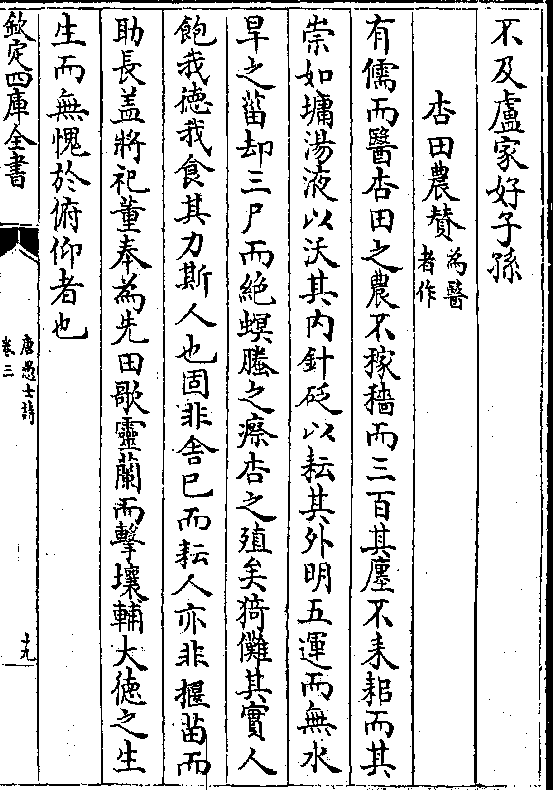 不及盧家好子孫
杏田農賛為醫者作
有儒而醫杏田之農不稼穡而三百其廛不耒耜而其
崇如墉湯液以沃其内針砭以耘其外明五運而無水
旱之菑却三尸而絶螟螣之瘵杏之殖矣猗儺其實人
飽我徳我食其力斯人也固非舍已而耘人亦非揠苗而
助長盖將祀董奉為先田歌靈蘭而擊壤輔大徳之生
生而無愧於俯仰者也
欽定四庫全書
唐愚士詩
卷三
十九